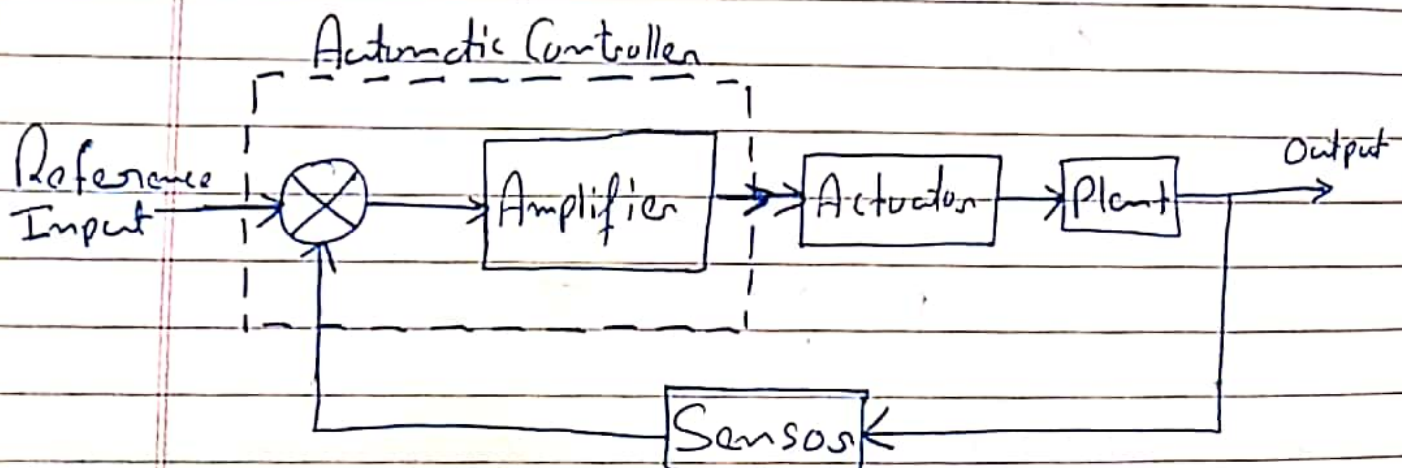 Automatic Controller
Reference
Input
Amplifier
Actuator
Plant
Output
Sensor